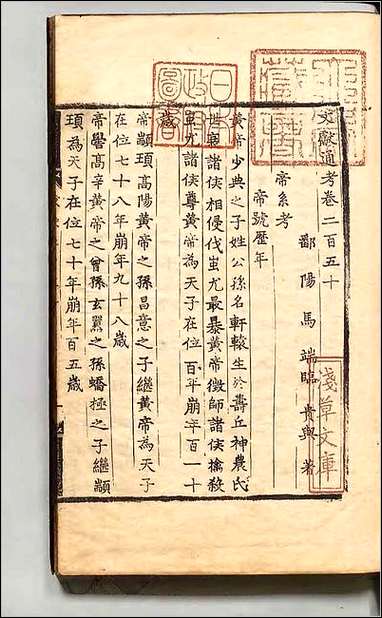 文獻通考卷二百五十
鄱陽馬端臨貴與著
帝系考
帝號歷年
黃帝少典之子姓公孫名軒轅生於壽丘神農氏
世衰諸侯相侵伐蚩尤最暴黃帝徵師諸侯擒殺
蚩尤諸侯尊黃帝為天子在位百年崩年百一十
歲
帝顓頊高陽黃帝之孫昌意之子繼黃帝為天子
在位七十八年崩年九十八歲
帝嚳高辛黃帝之曾孫玄囂之孫蟠極之子繼顓
頊為天子在位七十年崩年百五歲
淺草文庫
日本政府圖書